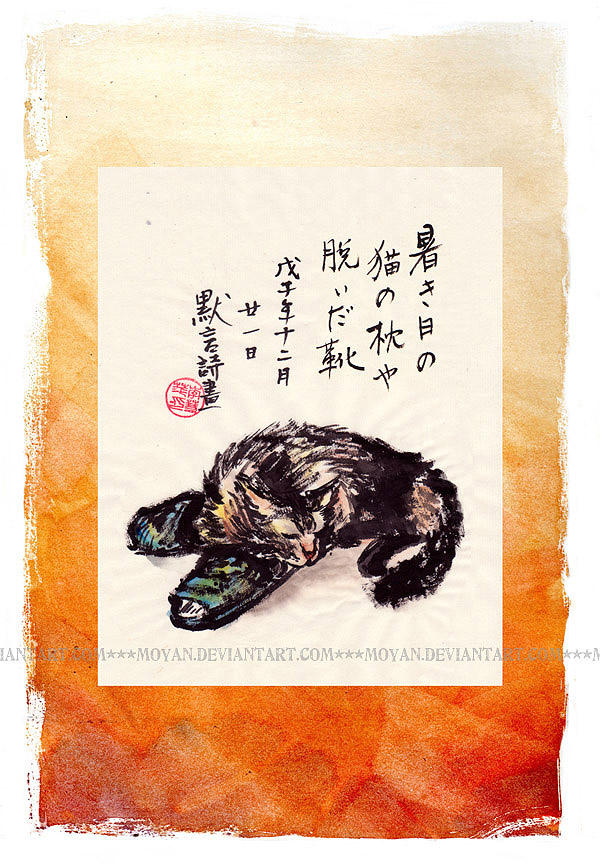 暑き日の
猫の枕や
脱いだ靴
戊子年十二月
廿一日
默言詩畫
IANTART.COM***MOYAN.DEVIANTART.COM***MOYAN.DEVIANTART.COM***M